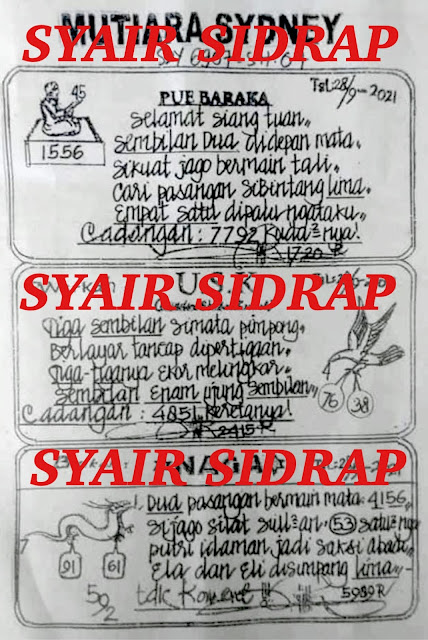 MUTIARA SYDNEY
SYAIR SIDRAP
Tgl:28/9-2021
45
1556
PUE BARAKA
Selamat siang tuan,,
Sembilan Dua didepan mata.
Sikuat jago bermain tali.
Cari pasangan sibintang lima.
Empat satu dipalu ngataku,,
Cadangan: 7792 Kuda²nya!
1720 R
SYAIR SIDRAP
Tiga sembilan simata pimpong.
Berlayar tancap dipertigaan.
Tiga-tiganya ekor melingkar.
Sembilan Enam ujung sembilan,,
Cadangan: 4851 keretanya!
2415 R
76
38
SYAIR SIDRAP
NAGA
Dua pasangan bermain mata. 4156,,
Sijago silat
53
putri idaman jadi saksi abadi,
Ela dan Eli disimpang lima,-
91
61
50
2
5989 R